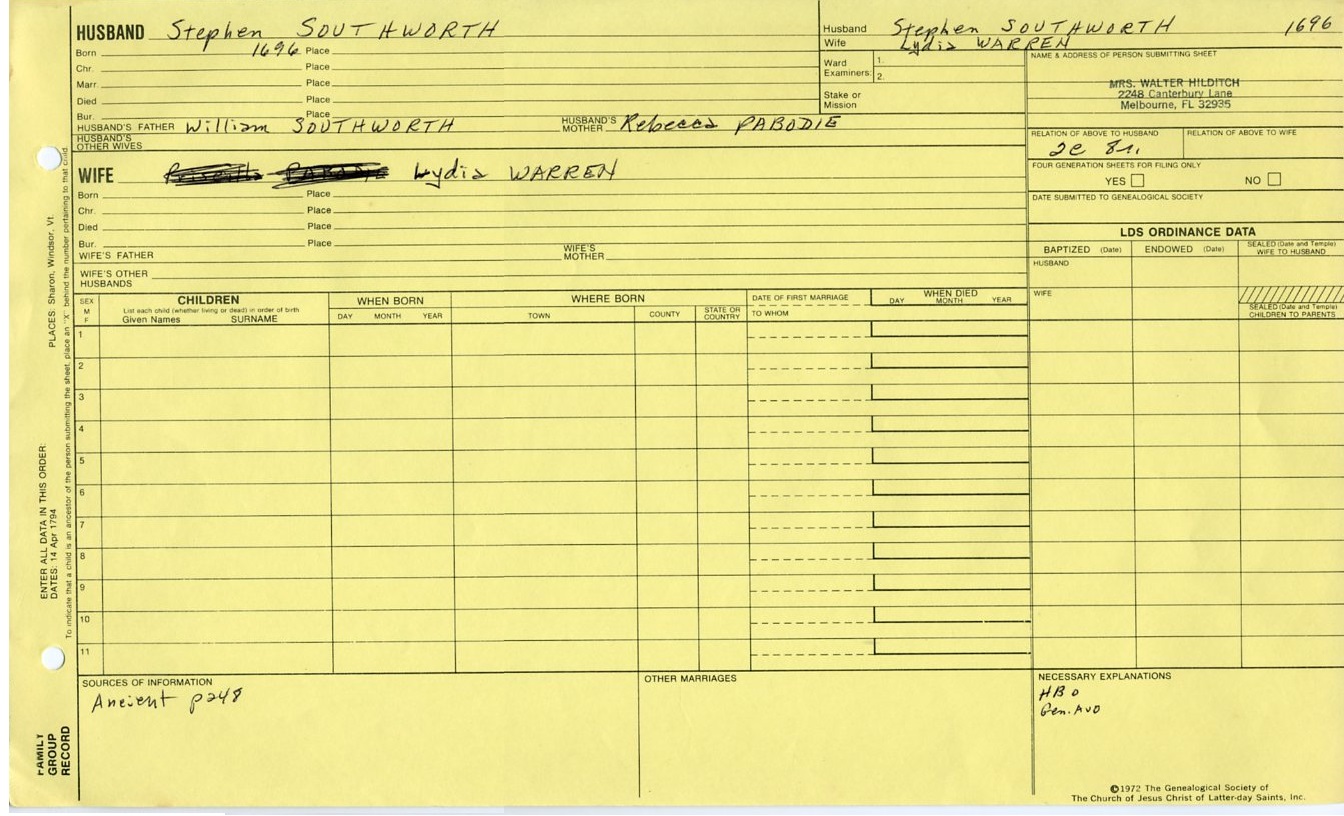 HUSBAND Stephen SOUTHWORTH
Born 1696 Place
Chr. Place
Marr. Place
Died Place
Bur. Place
HUSBAND'S FATHER William SOUTHWORTH HUSBAND'S MOTHER Rebecca PABODIE
HUSBAND'S OTHER WIVES
Husband Stephen SOUTHWORTH 1696
Wife Lydia WARREN
Ward Examiners: 1.
2.
Stake or Mission
NAME & ADDRESS OF PERSON SUBMITTING SHEET
MRS. WALTER HILDITCH
2248 Canterbury Lane
Melbourne, FL 32935
RELATION OF ABOVE TO HUSBAND RELATION OF ABOVE TO WIFE
2c 8r.
FOUR GENERATION SHEETS FOR FILING ONLY
YES NO
DATE SUBMITTED TO GENEALOGICAL SOCIETY
WIFE Priscilla PABODIE Lydia WARREN
Born Place
Chr. Place
Died Place
Bur. Place
WIFE'S FATHER WIFE'S MOTHER
WIFE'S OTHER HUSBANDS
LDS ORDINANCE DATA
BAPTIZED (Date) ENDOWED (Date) SEALED (Date and Temple) WIFE TO HUSBAND
HUSBAND
WIFE
SEALED (Date and Temple) CHILDREN TO PARENTS
SEX M F CHILDREN WHEN BORN WHERE BORN DATE OF FIRST MARRIAGE WHEN DIED
List each child (whether living or dead) in order of birth
Given Names SURNAME DAY MONTH YEAR TOWN COUNTY STATE OR COUNTRY TO WHOM DAY MONTH YEAR
1
2
3
4
5
6
7
8
9
10
11
SOURCES OF INFORMATION
Ancient p248
OTHER MARRIAGES
NECESSARY EXPLANATIONS
HBO
Gen. AVO
©1972 The Genealogical Society of
The Church of Jesus Christ of Latter-day Saints, Inc.
FAMILY
GROUP
RECORD
ENTER ALL DATA IN THIS ORDER:
DATES: 14 Apr 1794
PLACES: Sharon, Windsor, Vt.
To indicate that a child is an ancestor of the person submitting the sheet, place an "X" behind the number pertaining to that child.